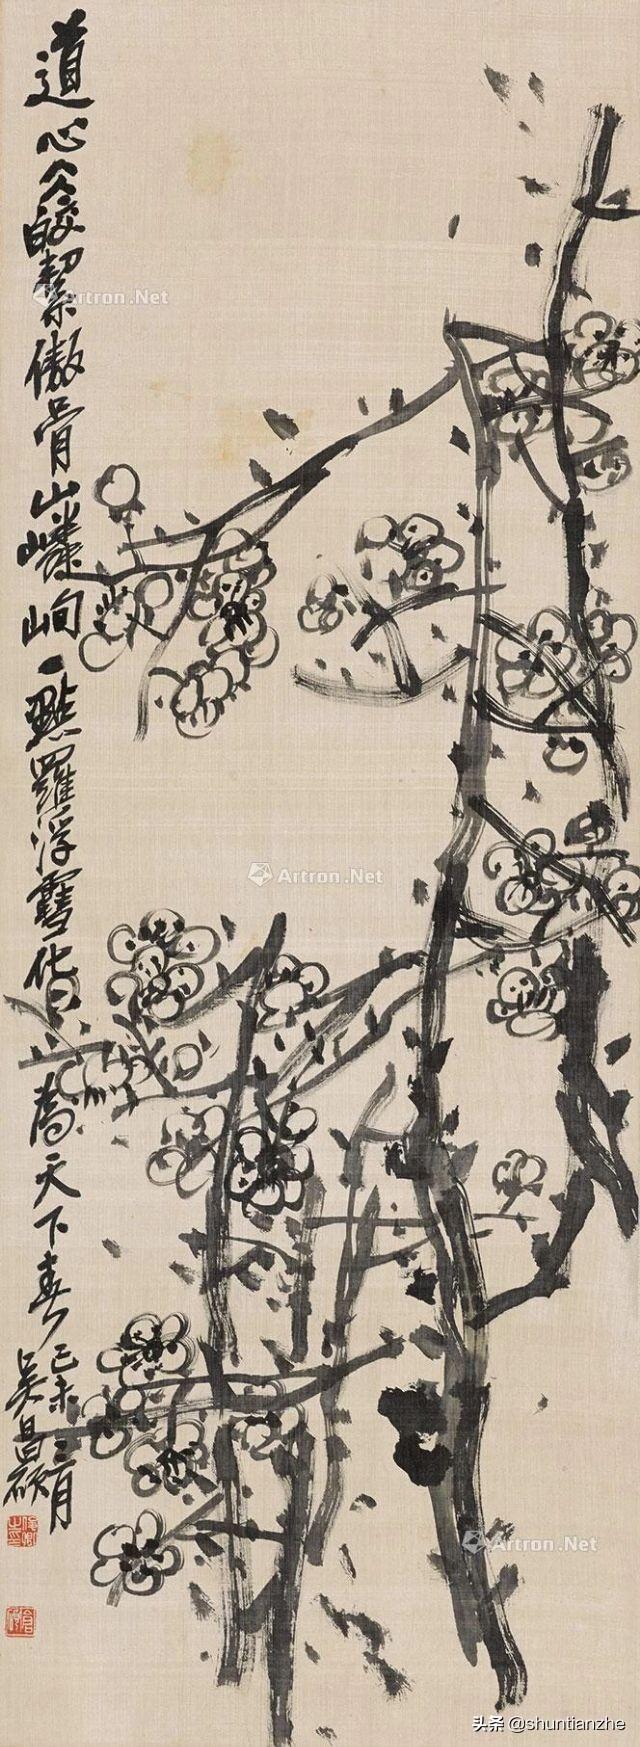 道心仌皎絜傲骨山嶙峋一點羅浮雪化為天下春
己未 月
吳昌碩
俊卿之印
倉碩
Artron.Net
Artron.Net
Artron.Net
头条 @shuntianzhe